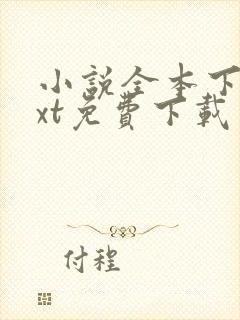 小说全本下
xt免費下載
付程